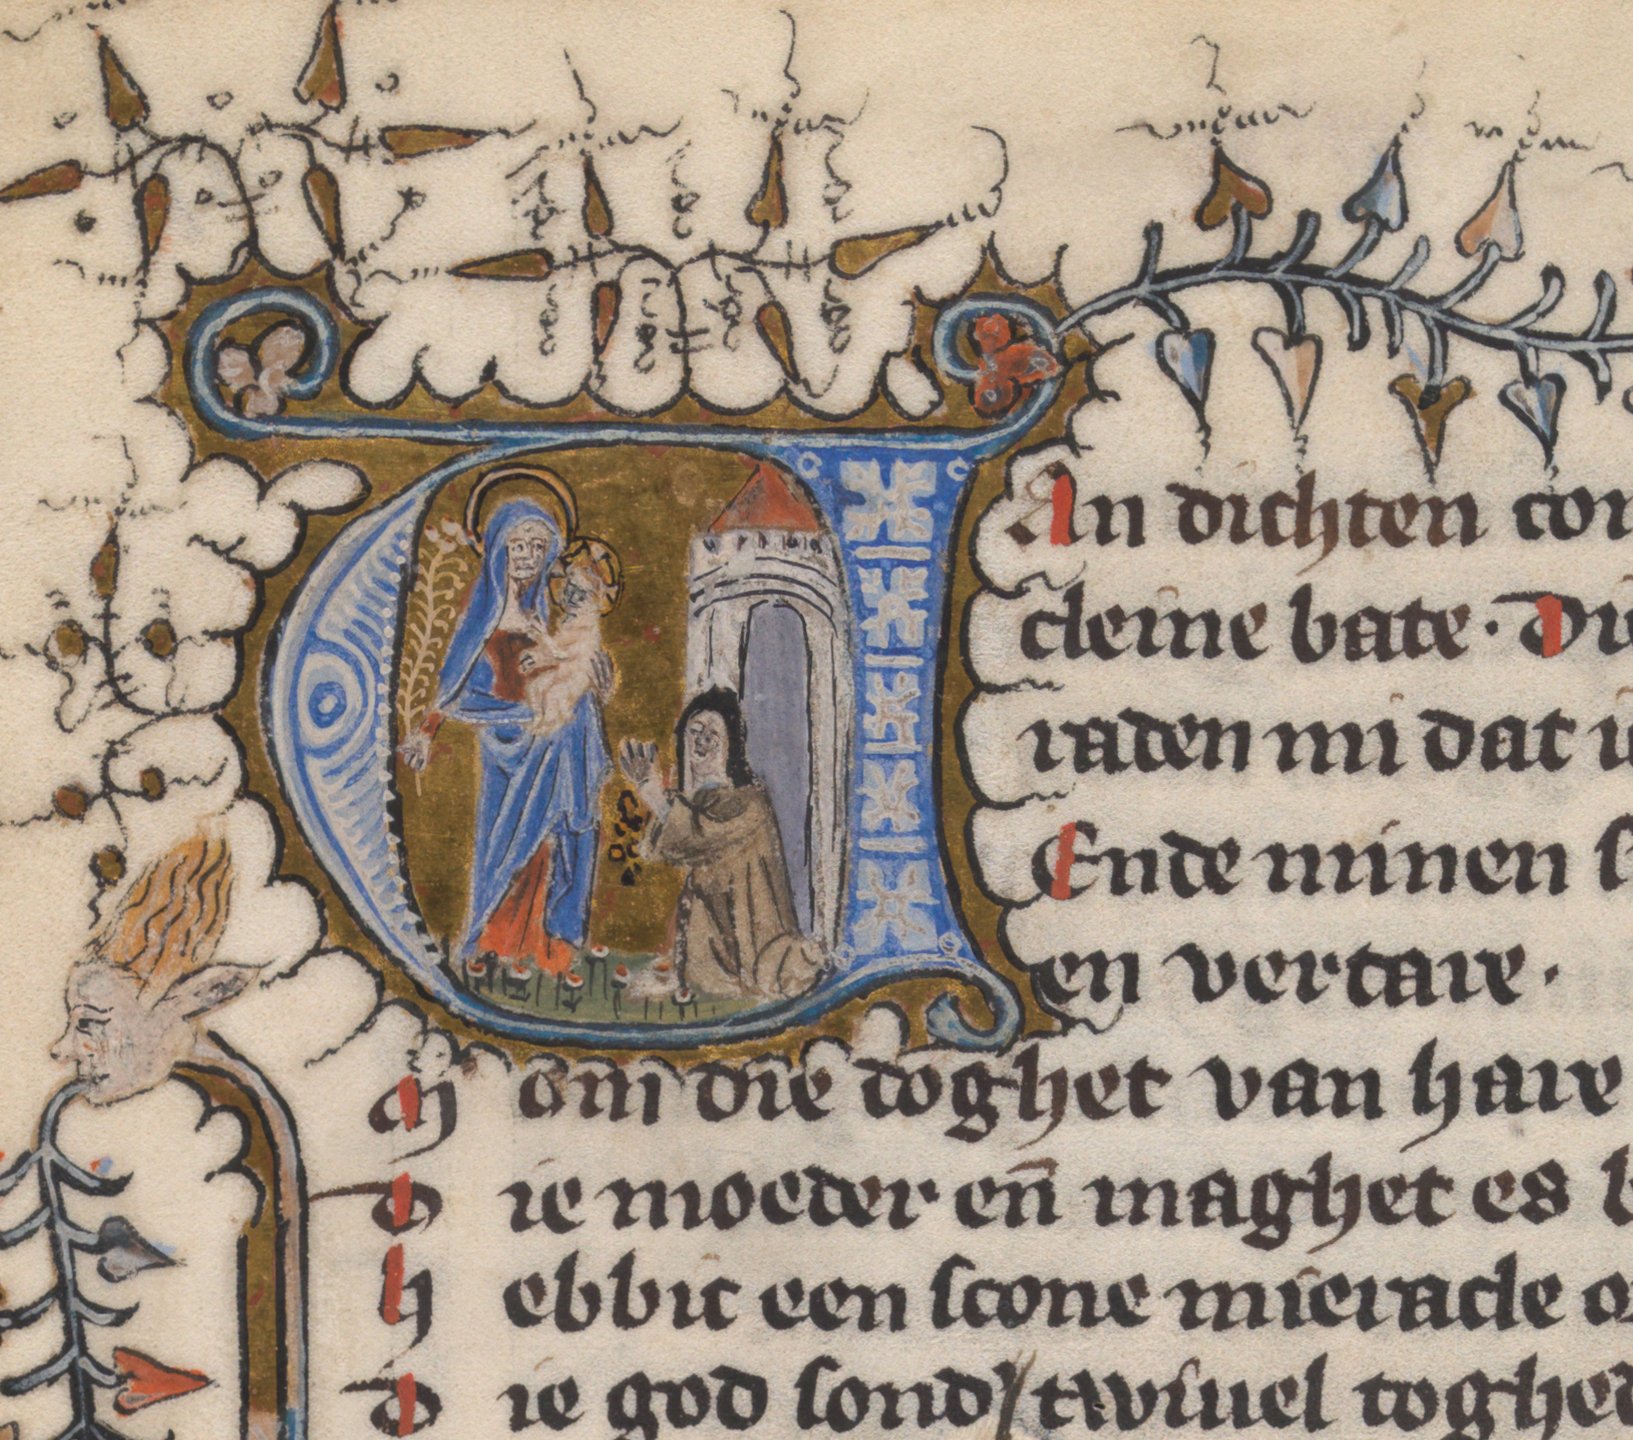 Van dichten com
cleine bate. Di
raden mi dat i
Ende minen s
en vertare.
M om die doghet van hare
D ie moeder en̄ maghet es b
H ebbic een scone mieracle o
D ie god sond' twiuel toghed